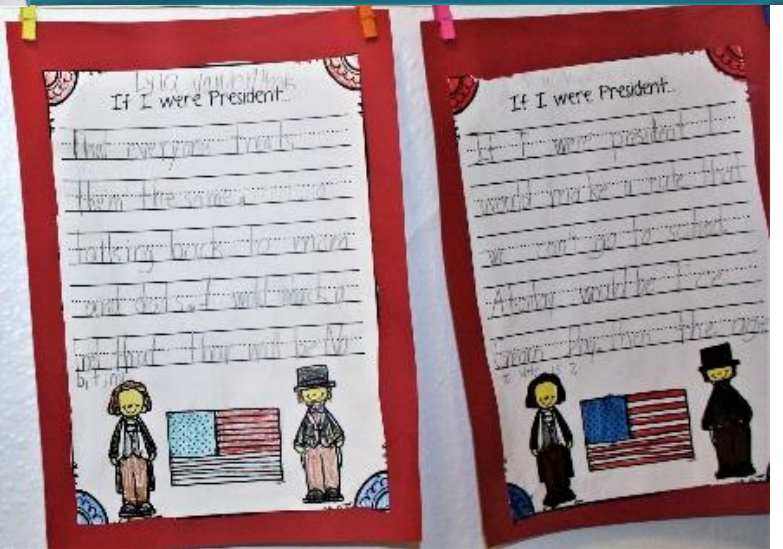 If I were President...
that everyone treats
them the same.
talking back to mom
and dads. I
that thar will be No
biting
If I were President...
If I were president I
would make a rule that
we can't go to school.
would be Ice
Cream Day. then the age